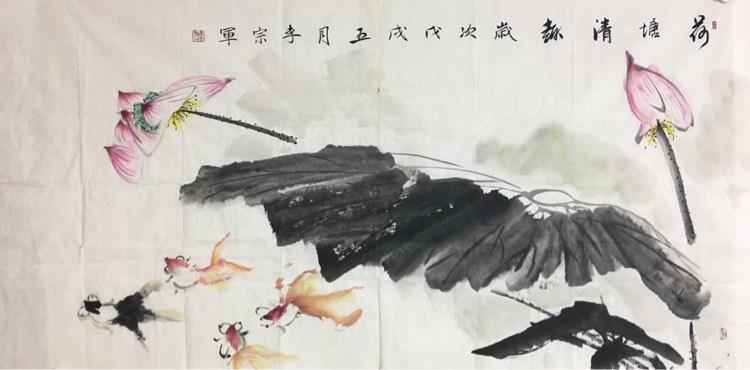 荷塘清韵歲次戊戌五月李宗軍